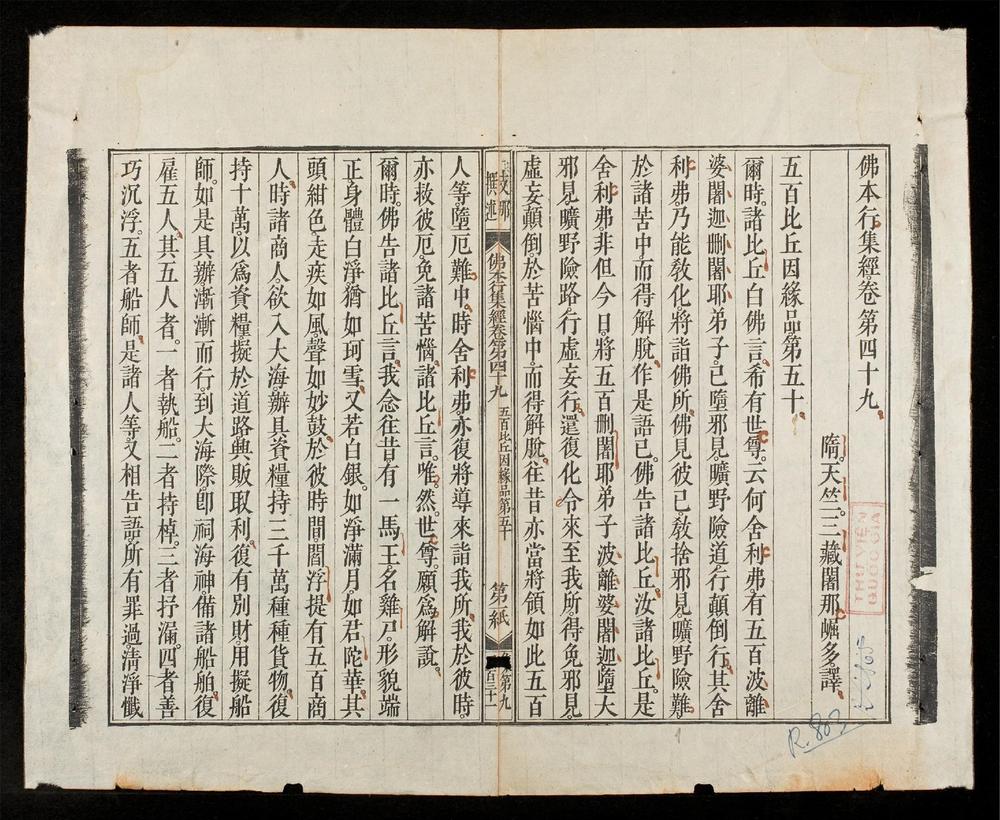 佛本行集經卷第四十九
隋。天竺三藏闍那崛多譯
五百比丘因緣品第五十
爾時。諸比丘白佛言。希有世尊。云何舍利弗。有五百波離
婆闍迦刪闍耶弟子。已墮邪見。曠野險道。行顛倒行。其舍
利弗乃能敎化。將詣佛所。佛見彼已敎捨邪見曠野險難。
於諸苦中。而得解脫。作是語已。佛告諸比丘。汝諸比丘。是
舍利弗。非但今日。將五百刪闍耶弟子波離婆闍迦。墮大
邪見。曠野險路。行虛妄行。還復化令來至我所。得免邪見。
虛妄顛倒。於苦惱中。而得解脫。往昔亦當將領如此五百
支那
撰述
佛本行集經卷第四十九 五百比丘因緣品第五十 第 紙
第九
百三十一
人等。墮厄難中。時舍利弗。亦復將導來詣我所。我於彼時。
亦救彼厄。免諸苦惱。諸比丘言。唯然。世尊。願爲解說。
爾時。佛告諸比丘言。我念往昔有一馬王。名雞尸。形貌端
正。身體白淨。猶如珂雪。又若白銀。如淨滿月。如君陀華。其
頭紺色。走疾如風。聲如妙鼓。於彼時間。閻浮提有五百商
人。時諸商人。欲入大海。辦具資糧。持三千萬種種貨物。復
持十萬。以爲資糧。擬於道路興販取利。復有別財。用擬船
師。如是具辦漸漸而行。到大海際。卽祠海神。備諸船舶。復
雇五人。其五人者。一者執船。二者持棹。三者抒漏。四者善
巧沉浮。五者船師。是諸人等。又相告語。所有罪過。淸淨懺
THƯ VIỆN
QUỐC GIA
R.802